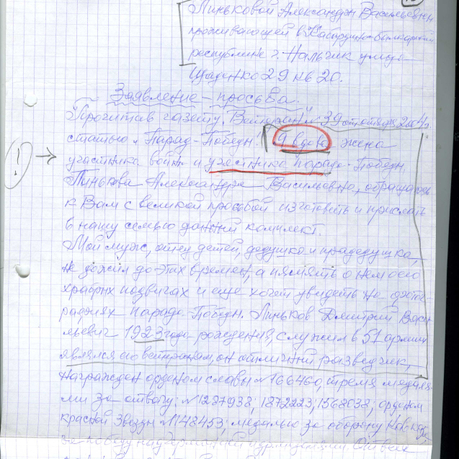 Пиньковой Александры Васильевны
проживающей в Кабардино-Балкарской
республике г. Нальчик улица
29 кв 20.
Заявление - просьба.
Прочитав газету, Ветеран № 39 октября
статью „Парад-Победы." Я вдова жена
участника войны и участника парада Победы
Пинькова Александра Васильевна, обращаюсь
к Вам с великой просьбой изготовить и прислать
в нашу семью данный комплект.
Мой муж, отец детей, дедушка и прадедушка,
не дожил до этих времен, а память о нем о его
храбрых подвигах и еще хочет увидеть на фото-
графиях парада Победы. Пиньков Дмитрий Васи-
льевич 1923 года рождения, служил в 51 армии
являлся он отличный разведчик,
награжден орденом славы № 166460, тремя медаля-
ми за отвагу: № 1227938, 1872223, 1568038, орденом
красной звезды № 1148453, медалью за оборону